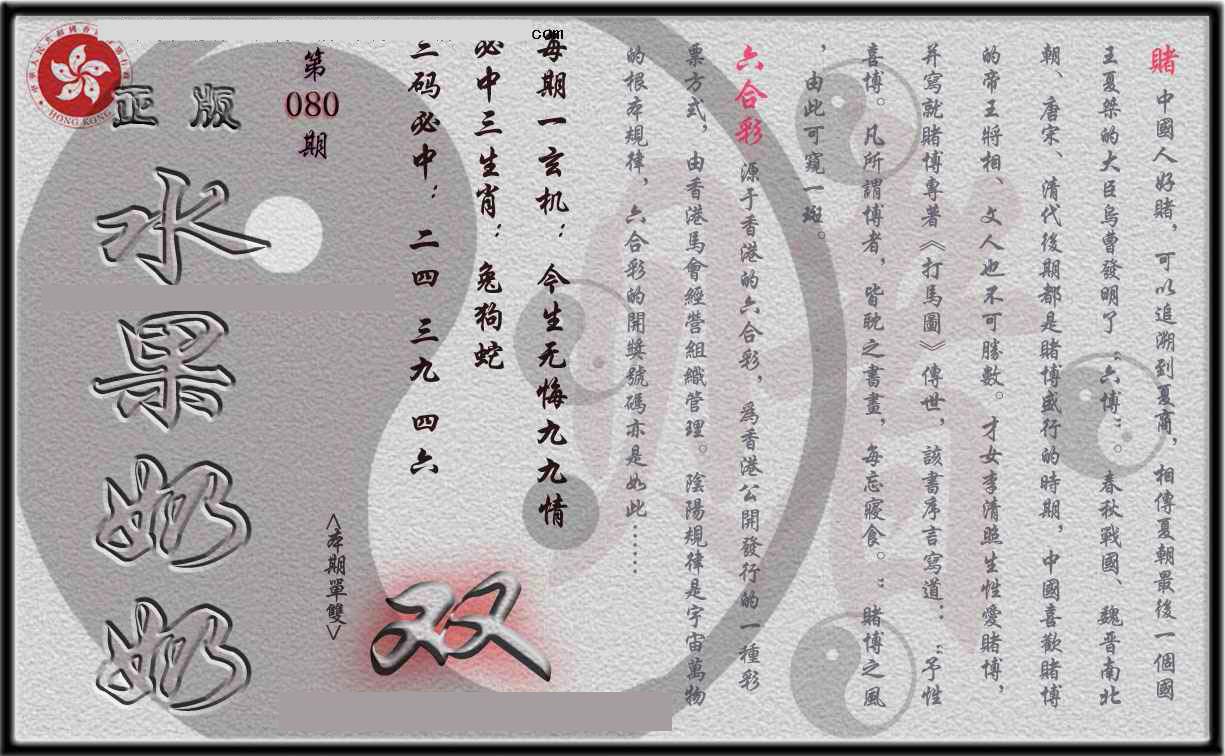 賭 中國人好賭，可以追溯到夏商，相傳夏朝最後一個國
王夏桀的大臣烏曹發明了“六博”。春秋戰國、魏晋南北
朝、唐宋、清代後期都是賭博盛行的時期，中國喜歡賭博
的帝王將相、文人也不可勝數。才女李清照生性愛賭博，
并寫就賭博專著《打馬圖》傳世，該書序言寫道：“予性
喜博。凡所謂博者，皆耽之書晝，每忘寢食。”賭博之風
，由此可窺一斑。
六合彩 源于香港的六合彩，爲香港公開發行的一種彩
票方式，由香港馬會經營組織管理。陰陽規律是宇宙萬物
的根本規律，六合彩的開獎號碼亦是如此……
com
每期一玄机：今生无悔九九情
必中三生肖：兔狗蛇
三码必中：二四 三九 四六
第
080
期
<本期單雙>
双
正版
水果奶奶
HONG KONG